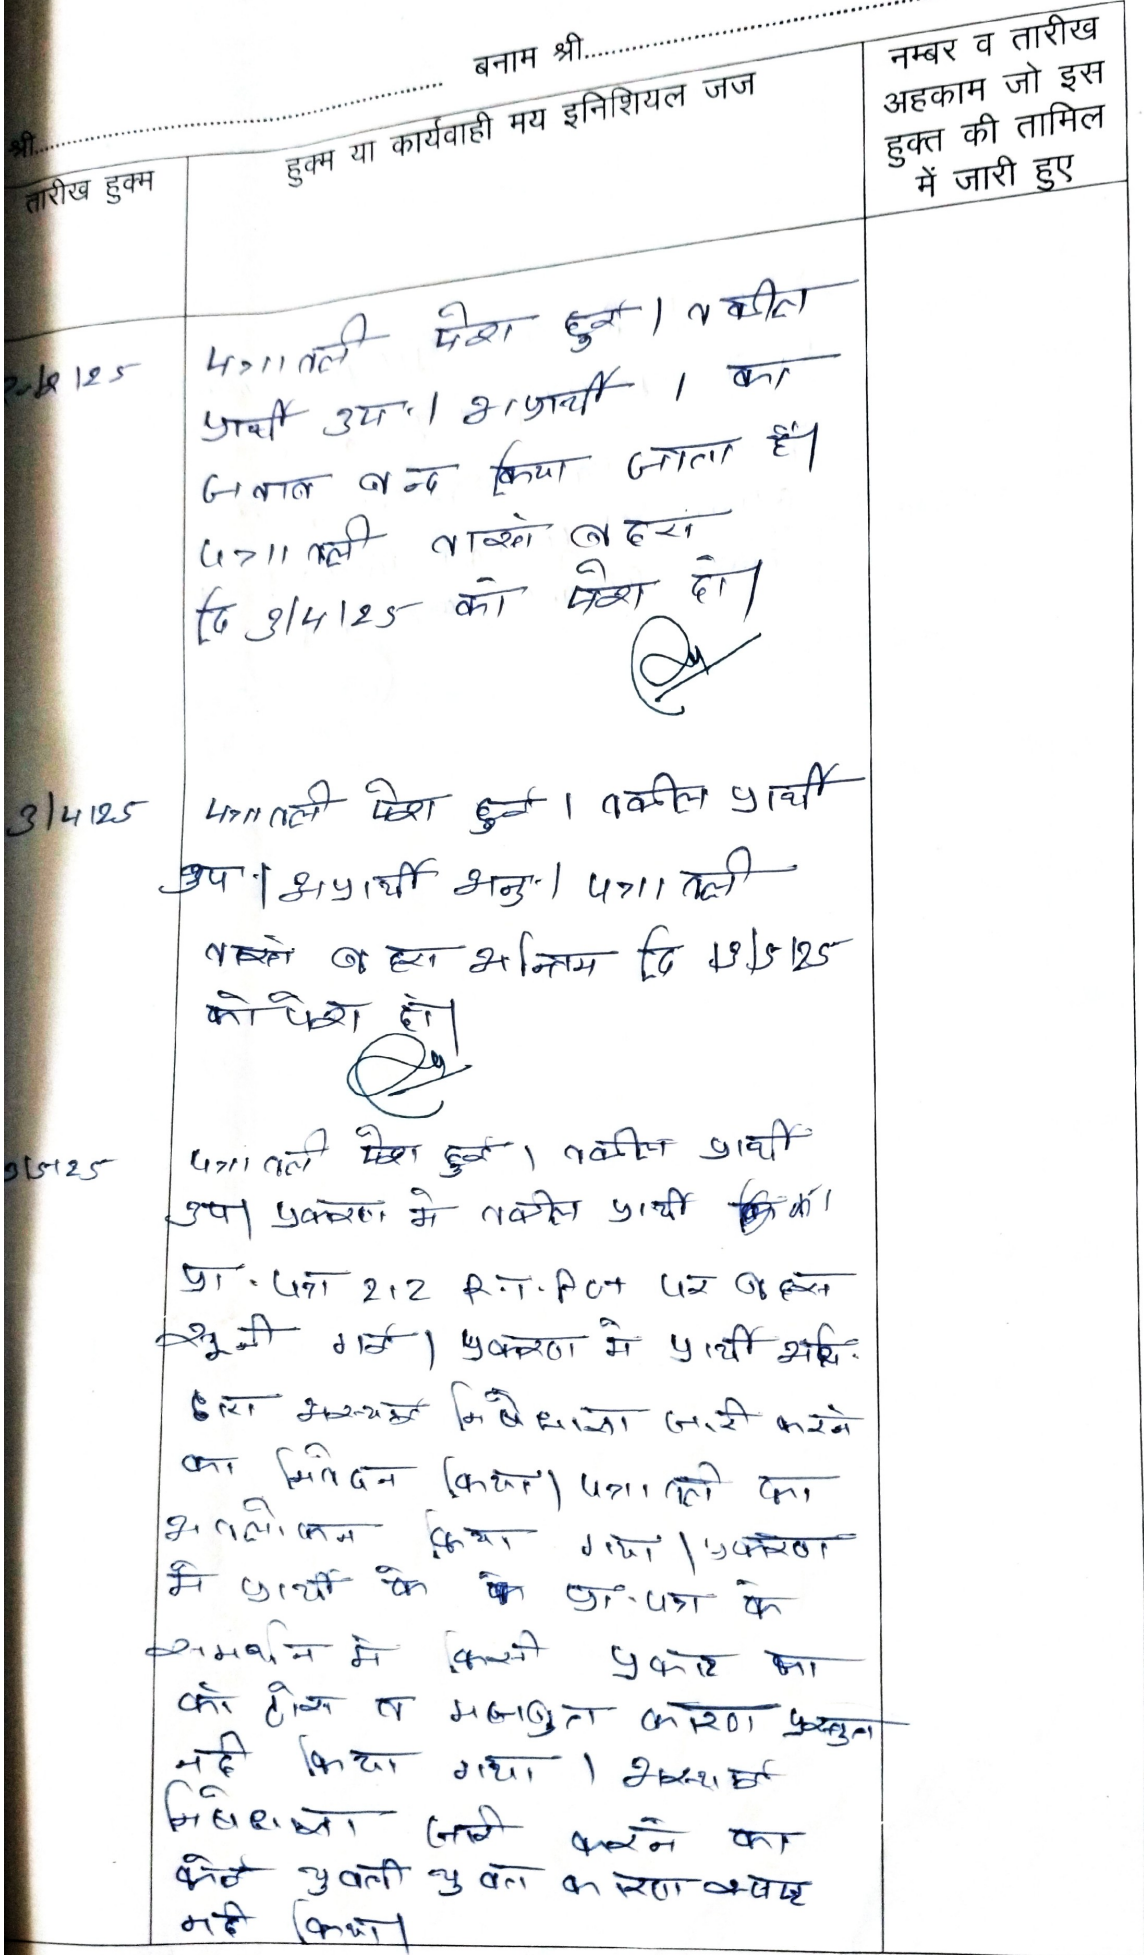 बनाम श्री
श्री
तारीख हुक्म
हुक्म या कार्यवाही मय इनिशियल जज
नम्बर व तारीख
अहकाम जो इस
हुक्त की तामिल
में जारी हुए
पत्रावली पेश हुई। वकील
प्रार्थी उप.। अप्रार्थी 1 का
जवाब बन्द किया जाता है।
पत्रावली वास्ते बहस
दि 3/4/25 को पेश हो।
3/4/25
पत्रावली पेश हुई। वकील प्रार्थी
उप.। अप्रार्थी अनु.। पत्रावली
वास्ते बहस अन्तिम दि 13/5/25
को पेश हो।
पत्रावली पेश हुई। वकील प्रार्थी
उप। प्रकरण मे वकील प्रार्थी का
प्रा. पत्र 212 R.T. Act पर बहस
सुनी गई। प्रकरण मे प्रार्थी
द्वारा अस्थाई निषेधाज्ञा जारी करने
का निवेदन किया। पत्रावली का
अवलोकन किया गया। प्रकरण
मे प्रार्थी के के प्रा. पत्र के
समर्थन मे किसी प्रकार का
को ठोस व मजबुत कारण प्रस्तुत
नही किया गया। अस्थाई
निषेधाज्ञा जारी करने का
कोई युक्ती युक्त कारण स्पष्ट
नही किया।